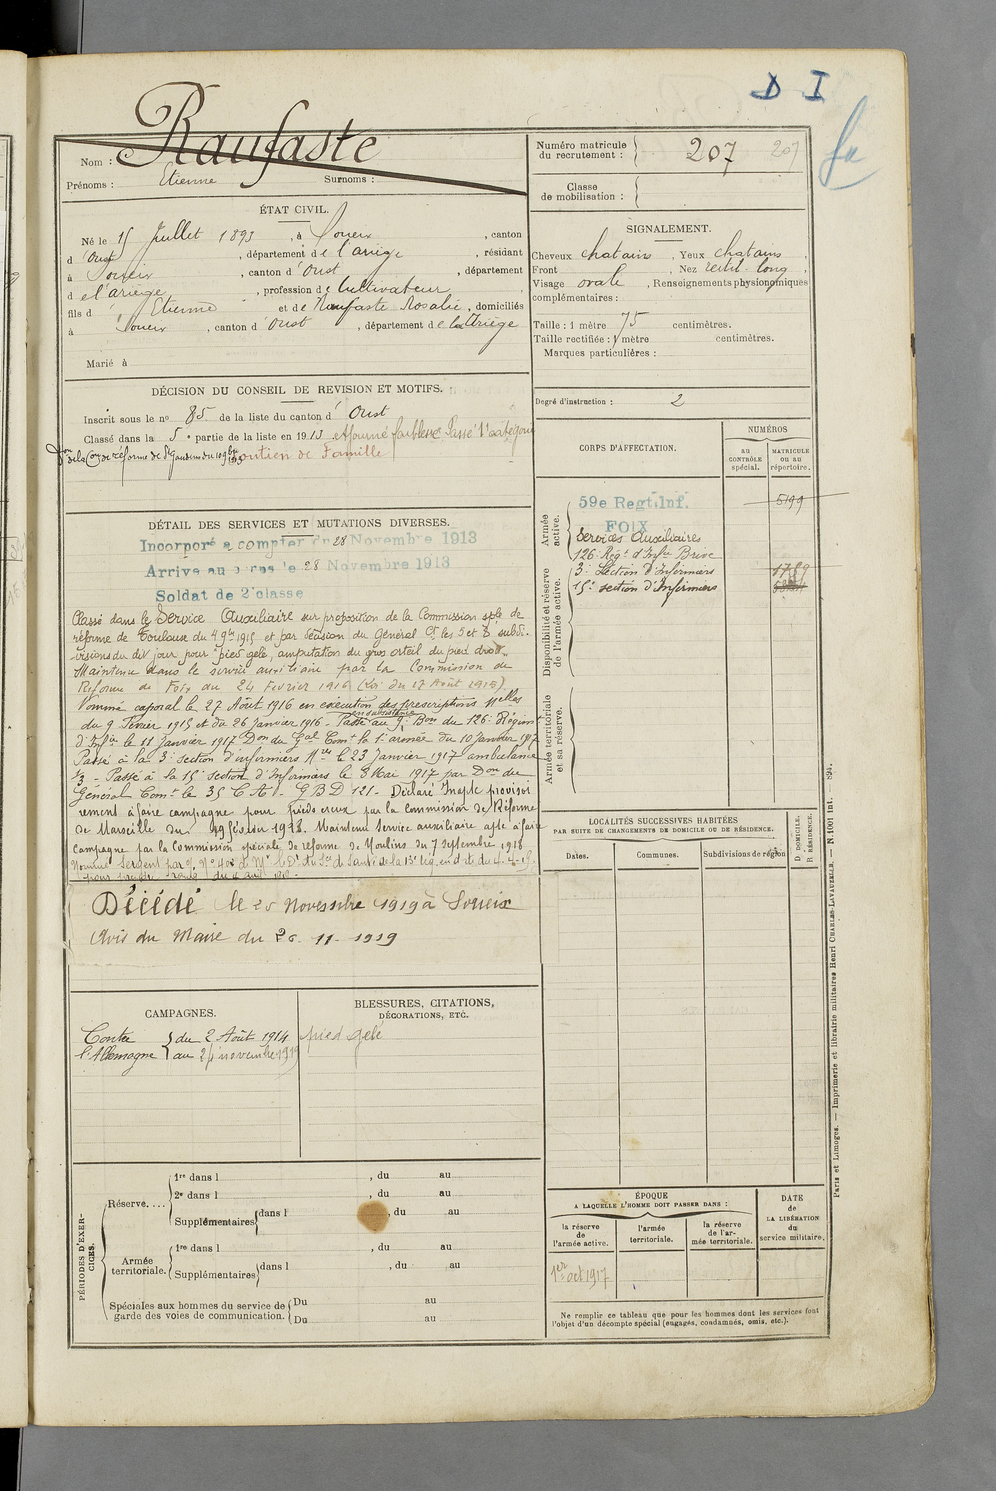 D I
Raufaste
Nom :
Prénoms : Etienne Surnoms :
Numéro matricule du recrutement : 207 207
Classe de mobilisation :
ÉTAT CIVIL.
Né le 15 Juillet 1893, à Soueix, canton
d'Oust, département de l'ariège, résidant
à Soueix, canton d'Oust, département
de l'ariège, profession de Cultivateur,
fils d Etienne et de Raufaste Rosalie, domiciliés
à Soueix, canton d'Oust, département de l'Ariège
Marié à
SIGNALEMENT.
Cheveux chatains, Yeux chatains
Front , Nez rectil. long,
Visage ovale, Renseignements physionomiques
complémentaires :
Taille : 1 mètre 75 centimètres.
Taille rectifiée : 1 mètre centimètres.
Marques particulières :
Degré d'instruction : 2
DÉCISION DU CONSEIL DE REVISION ET MOTIFS.
Inscrit sous le no 85 de la liste du canton d'Oust
Classé dans la 5e partie de la liste en 1913 ajourné faiblesse Passé 1re catégorie
Soutien de Famille
CORPS D'AFFECTATION.
NUMÉROS
au CONTRÔLE spécial.
MATRICULE ou au répertoire.
Armée active.
59e Regt.Inf. 5199
FOIX
Services Auxiliaires
126e Régt d'Infie Brive
Disponibilité et réserve de l'armée active.
3e Section d'Infirmiers
15e section d'Infirmiers
Armée territoriale et sa réserve.
DÉTAIL DES SERVICES ET MUTATIONS DIVERSES.
Incorporé à compter du 28 Novembre 1913
Arrivé au corps le 28 Novembre 1913
Soldat de 2e classe
Classé dans le Service Auxiliaire sur proposition de la Commission sple de
réforme de Toulouse du 4 9bre 1915 et par décision du Général Ct les 5 et 6 subdi-
visions du dit jour pour pied gelé, amputation du gros orteil du pied droit.
Maintenu dans le service auxiliaire par la Commission de
Réforme de Foix du 24 Fevrier 1916 (Loi du 17 Août 1915)
Nommé caporal le 27 Août 1916 en exécution des prescriptions Melles
du 9 Février 1915 et du 26 Janvier 1916 - Passé en subsistance au 9e Bon du 126e Régiment
d'Infie le 11 Janvier 1917 Don du Gal Comt la 1e armée du 10 Janvier 1917
Passé à la 3e section d'infirmiers Mres le 23 Janvier 1917 ambulance
3/3 - Passé à la 15e section d'Infirmiers le 8 Mai 1917 par Don du
Général Comt le 35 C.A. - G B D 121 - Déclaré Inapte provisoi
rement à faire campagne pour pieds creux par la commission de Réforme
de Marseille du 19 février 1918. Maintenu Service auxiliaire apte à faire
campagne par la Commission spéciale de réforme de Moulins du 7 Septembre 1918
Décédé le 25 Novembre 1919 à Soueix
Avis du Maire du 26-11-1919
LOCALITÉS SUCCESSIVES HABITÉES
PAR SUITE DE CHANGEMENTS DE DOMICILE OU DE RÉSIDENCE.
Dates. Communes. Subdivisions de région
D. DOMICILE. R. RÉSIDENCE.
CAMPAGNES.
Contre l'Allemagne du 2 Août 1914
au novembre 1919
BLESSURES, CITATIONS,
DÉCORATIONS, ETC.
pied gelé
PÉRIODES D'EXERCICES.
Réserve....
1re dans l , du au
2e dans l , du au
Supplémentaires dans l , du au
Armée territoriale.
1re dans l , du au
Supplémentaires dans l , du au
Spéciales aux hommes du service de
garde des voies de communication.
Du au
Du au
ÉPOQUE
A LAQUELLE L'HOMME DOIT PASSER DANS :
la réserve de l'armée active.
l'armée territoriale.
la réserve de l'armée territoriale.
DATE de LA LIBÉRATION du service militaire.
1er oct 1917
Ne remplir ce tableau que pour les hommes dont les services font
l'objet d'un décompte spécial (engagés, condamnés, omis, etc.).
Paris et Limoges. — Imprimerie et librairie militaires Henri CHARLES-LAVAUZELLE. — N. 1001 int. — 894.